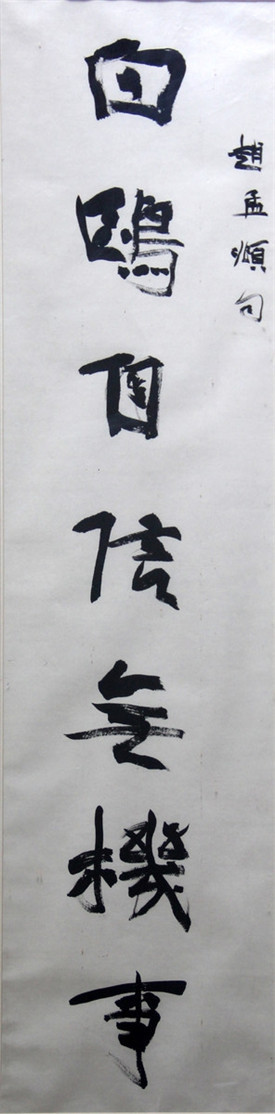 趙孟頫句
白鷗自信無機事